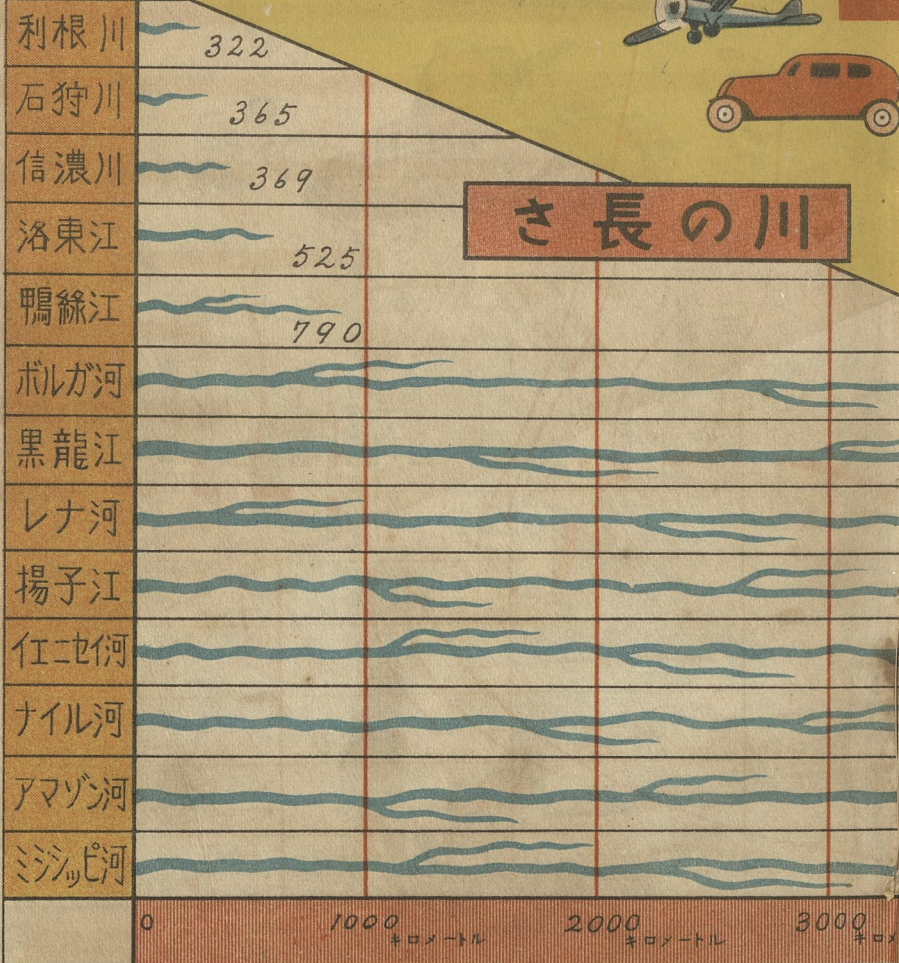 川の長さ
利根川 322
石狩川 365
信濃川 369
洛東江 525
鴨緑江 790
ボルガ河
黒龍江
レナ河
揚子江
イエニセイ河
ナイル河
アマゾン河
ミシシッピ河
0 1000キロメートル 2000キロメートル 3000キロメ